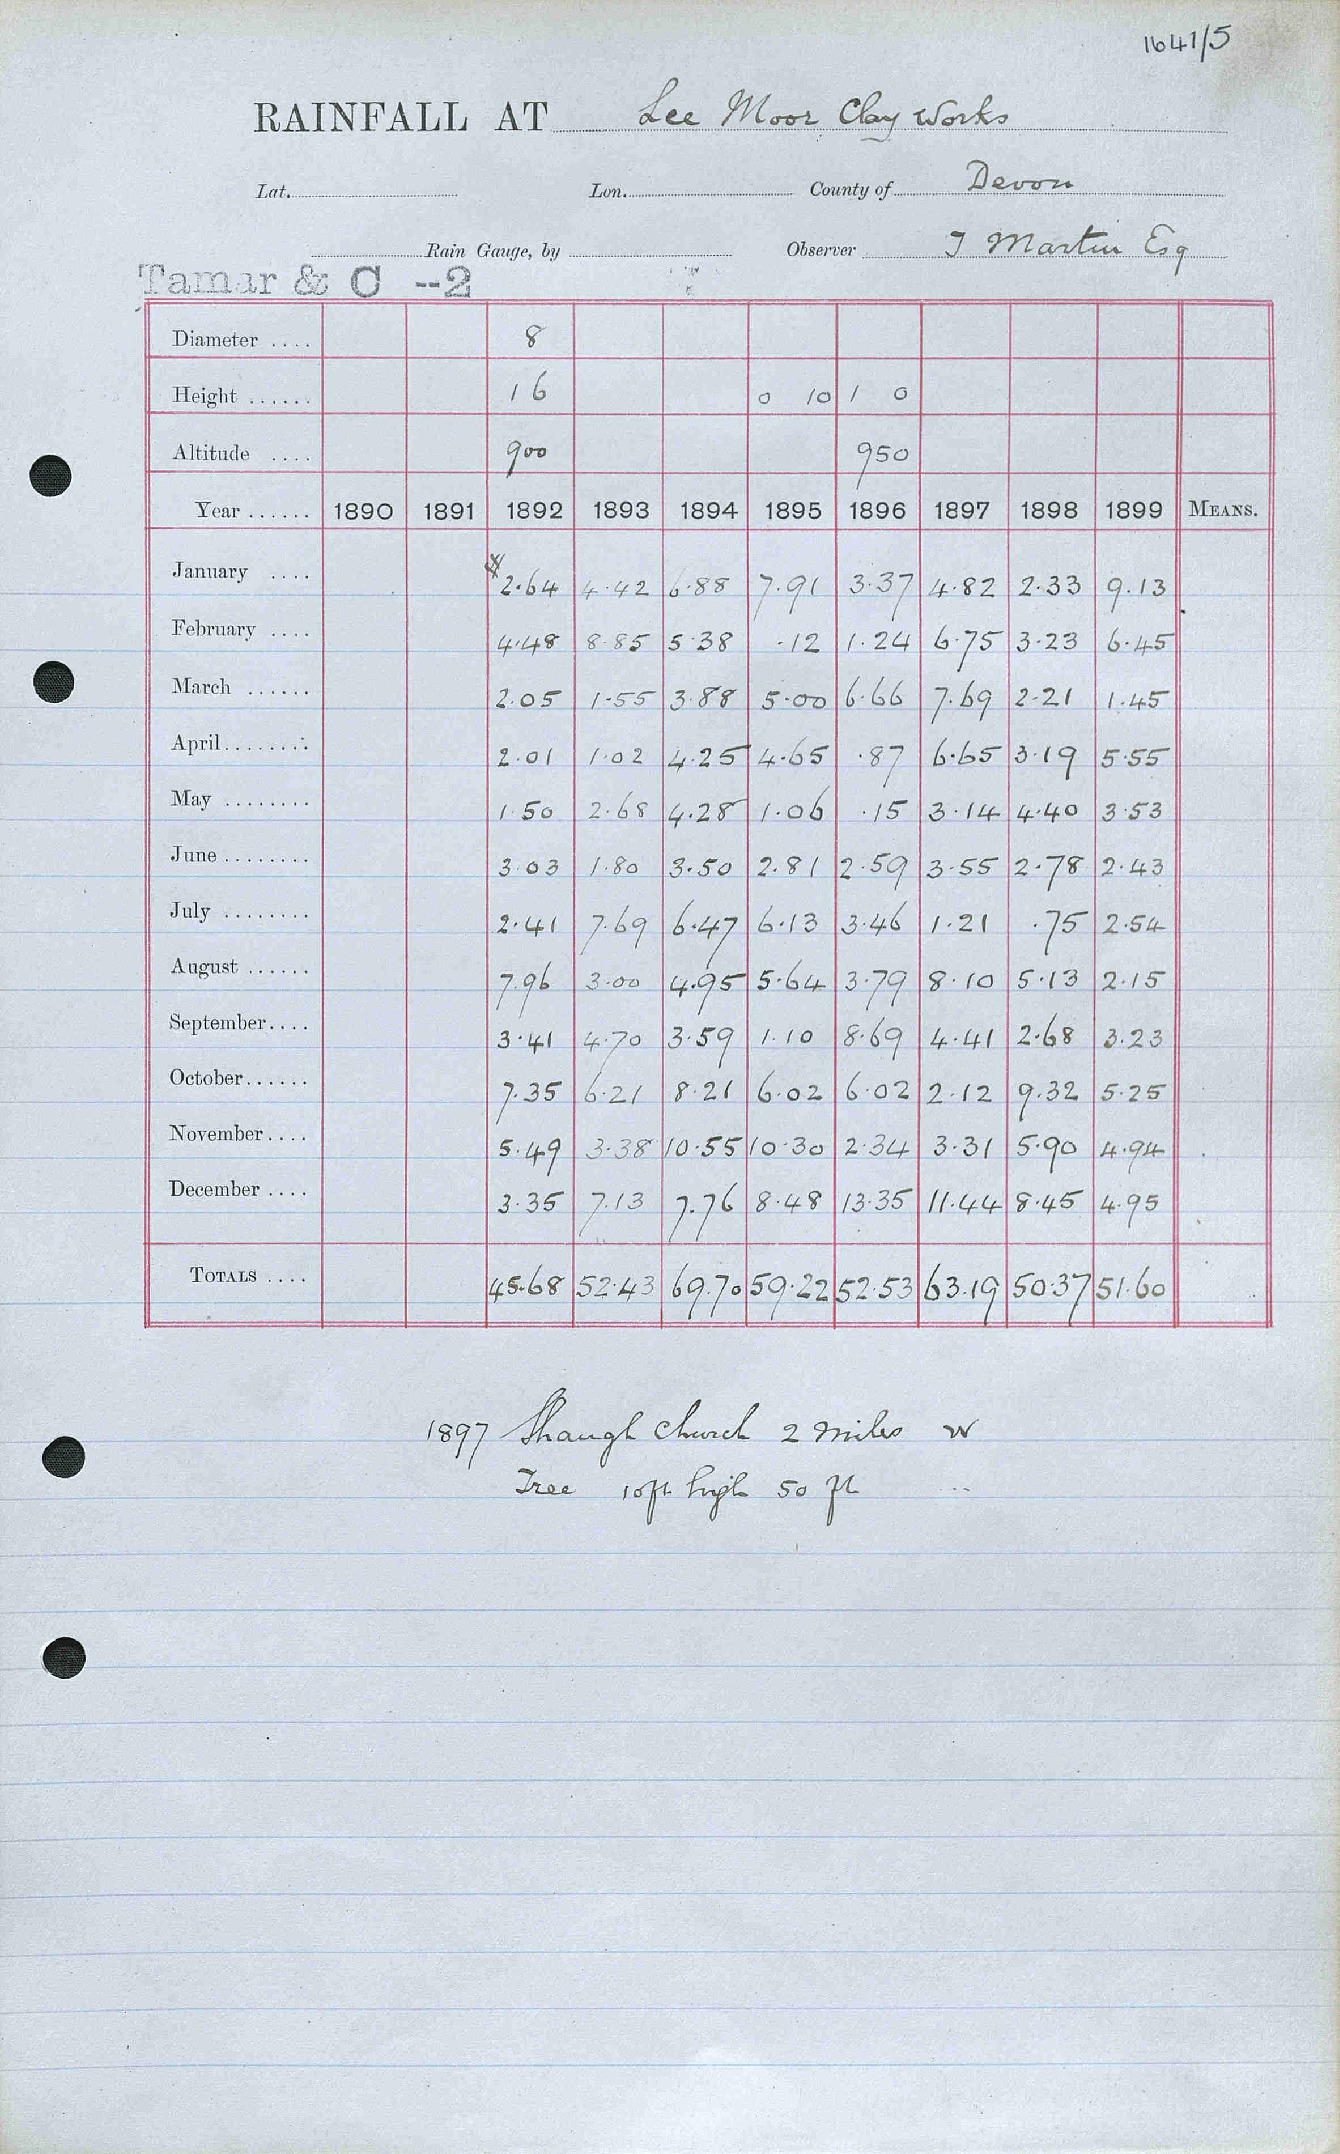 1641/5
RAINFALL AT Lee Moor Clay Works
Lat. Lon. County of Devon
Rain Gauge, by Observer J Martin Esq
Tamar & C --2
Diameter .... 8
Height ...... 1 6 0 10 1 0
Altitude .... 900 950
Year ...... 1890 1891 1892 1893 1894 1895 1896 1897 1898 1899 MEANS.
January .... 2.64 4.42 6.88 7.91 3.37 4.82 2.33 9.13
February .... 4.48 8.85 5.38 .12 1.24 6.75 3.23 6.45
March ...... 2.05 1.55 3.88 5.00 6.66 7.69 2.21 1.45
April........ 2.01 1.02 4.25 4.65 .87 6.65 3.19 5.55
May ........ 1.50 2.68 4.28 1.06 .15 3.14 4.40 3.53
June ........ 3.03 1.80 3.50 2.81 2.59 3.55 2.78 2.43
July ........ 2.41 7.69 6.47 6.13 3.46 1.21 .75 2.54
August ...... 7.96 3.00 4.95 5.64 3.79 8.10 5.13 2.15
September.... 3.41 4.70 3.59 1.10 8.69 4.41 2.68 3.23
October...... 7.35 6.21 8.21 6.02 6.02 2.12 9.32 5.25
November.... 5.49 3.38 10.55 10.30 2.34 3.31 5.90 4.94
December .... 3.35 7.13 7.76 8.48 13.35 11.44 8.45 4.95
TOTALS .... 45.68 52.43 69.70 59.22 52.53 63.19 50.37 51.60
1897 Shaugh Church 2 miles W
Tree 10ft high 50 ft ...